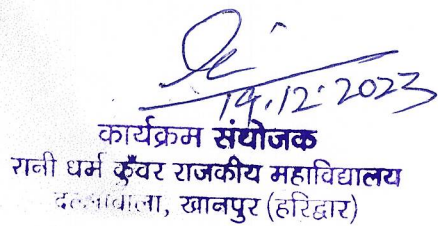 14.12.2023
कार्यक्रम संयोजक
रानी धर्म कुँवर राजकीय महाविद्यालय
खानपुर (हरिद्वार)